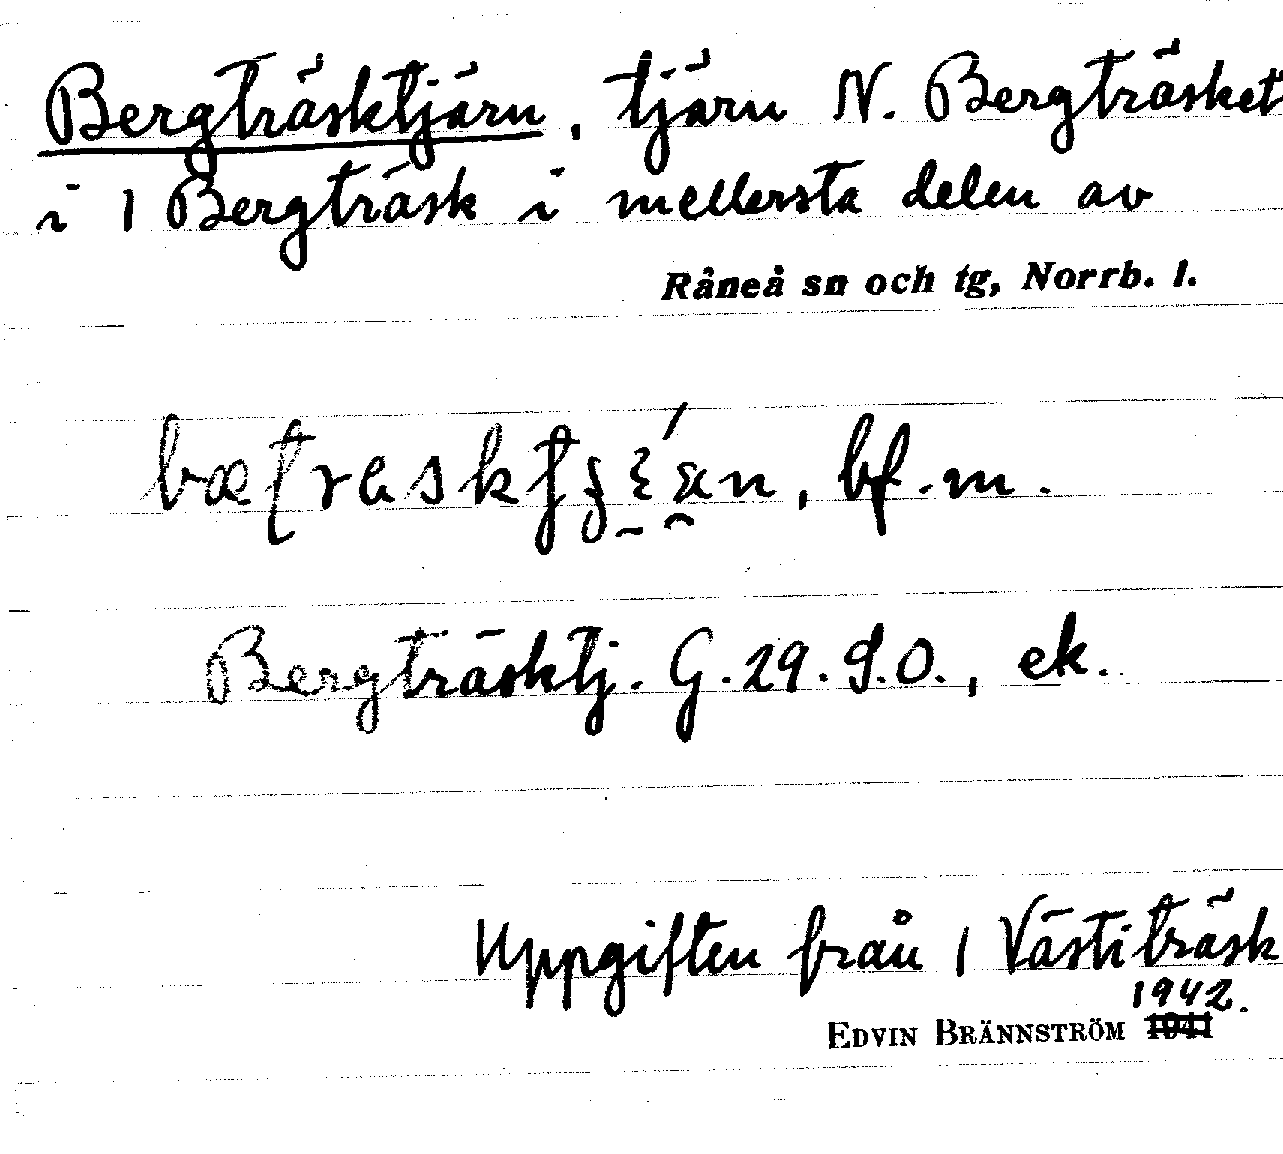 Bergträsktjärn, tjärn N. Bergträsket
i 1 Bergträsk i mellersta delen av
Råneå sn och tg, Norrb. l.
bf. m.
Bergträsktj. G. 29. d. O., ek.
Uppgiften från 1 Västiträsk
1942.
EDVIN BRÄNNSTRÖM 1941